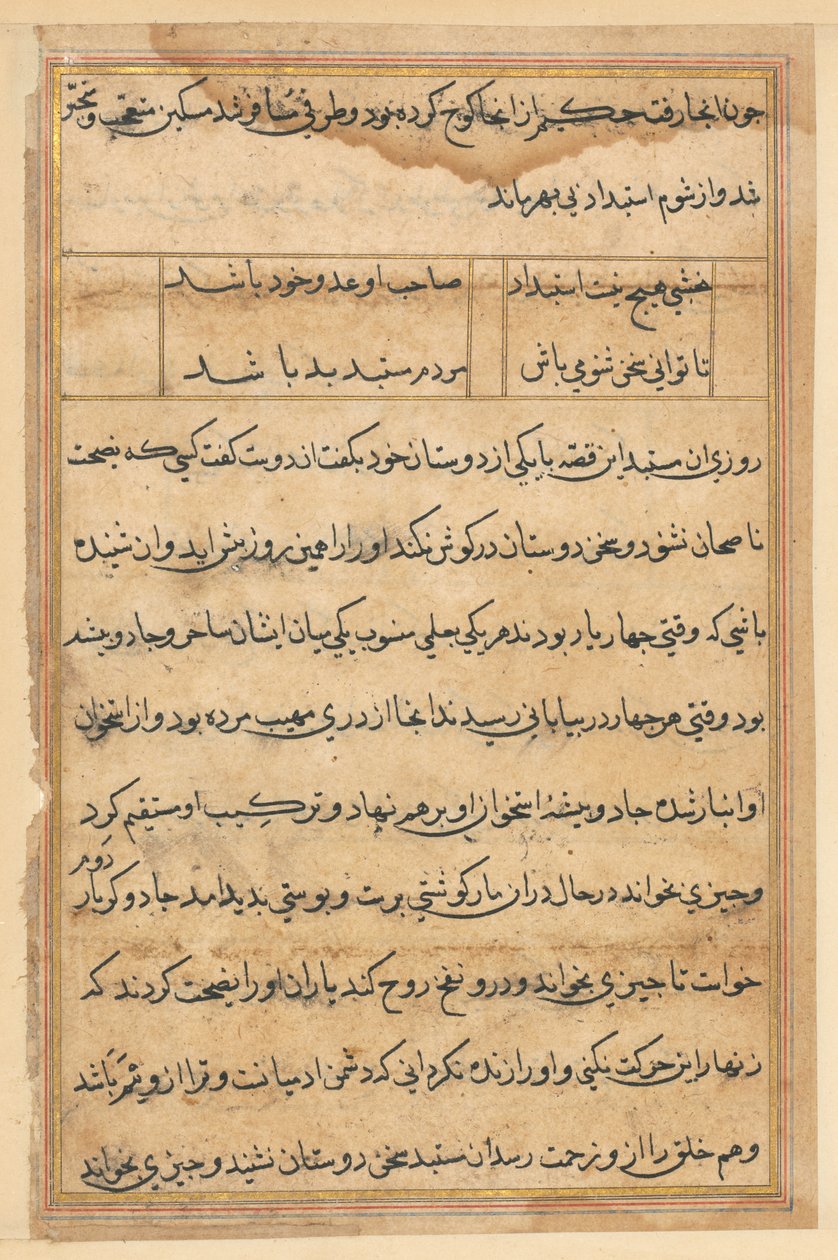 جون انجا رفت حكيم از انجا كوچ كرده بود و طرفي مسافر شد مسكين متعجب و متحيّر
شد و از شوم استبداد بي بهر ماند
نخشبي هيچ نيست استبداد صاحب او عدو خود باشد
تا تواني سخن شنو مي باش مردم مستبد بد باشد
روزي ان مستبد اين قصّه با يكي از دوستان خود بكفت ان دوست كفت كسي كه نصيحت
ناصحان نشنود و سخن دوستان در كوش نكند او را همين روز پيش ايد و ان شنيده
باشي كه وقتي جهار يار بودند هر يكي بعلمي منسوب يكي ميان ايشان ساحر و جادو پيشه
بود وقتي هر جهار در بياباني رسيدند انجا اژدري مهيب مرده بود و از استخوان
او انبار شده جادو پيشهٔ استخوان او بر هم نهاد و تركيب او مستقيم كرد
و جيزي بخواند در حال دران مار كوشتي برست و پوستي بديد امد جادوكر بار
دوم
خواست تا جيزي بخواند و درو نفخ روح كند ياران او را نصيحت كردند كه
زنهار اين حركت نكني و او را زنده نكرداني كه دشمن ادميانست و ترا ازو بيم باشد
و هم خلق را ازو زحمت رسد ان مستبد سخن دوستان نشنيد و جيزي بخواند